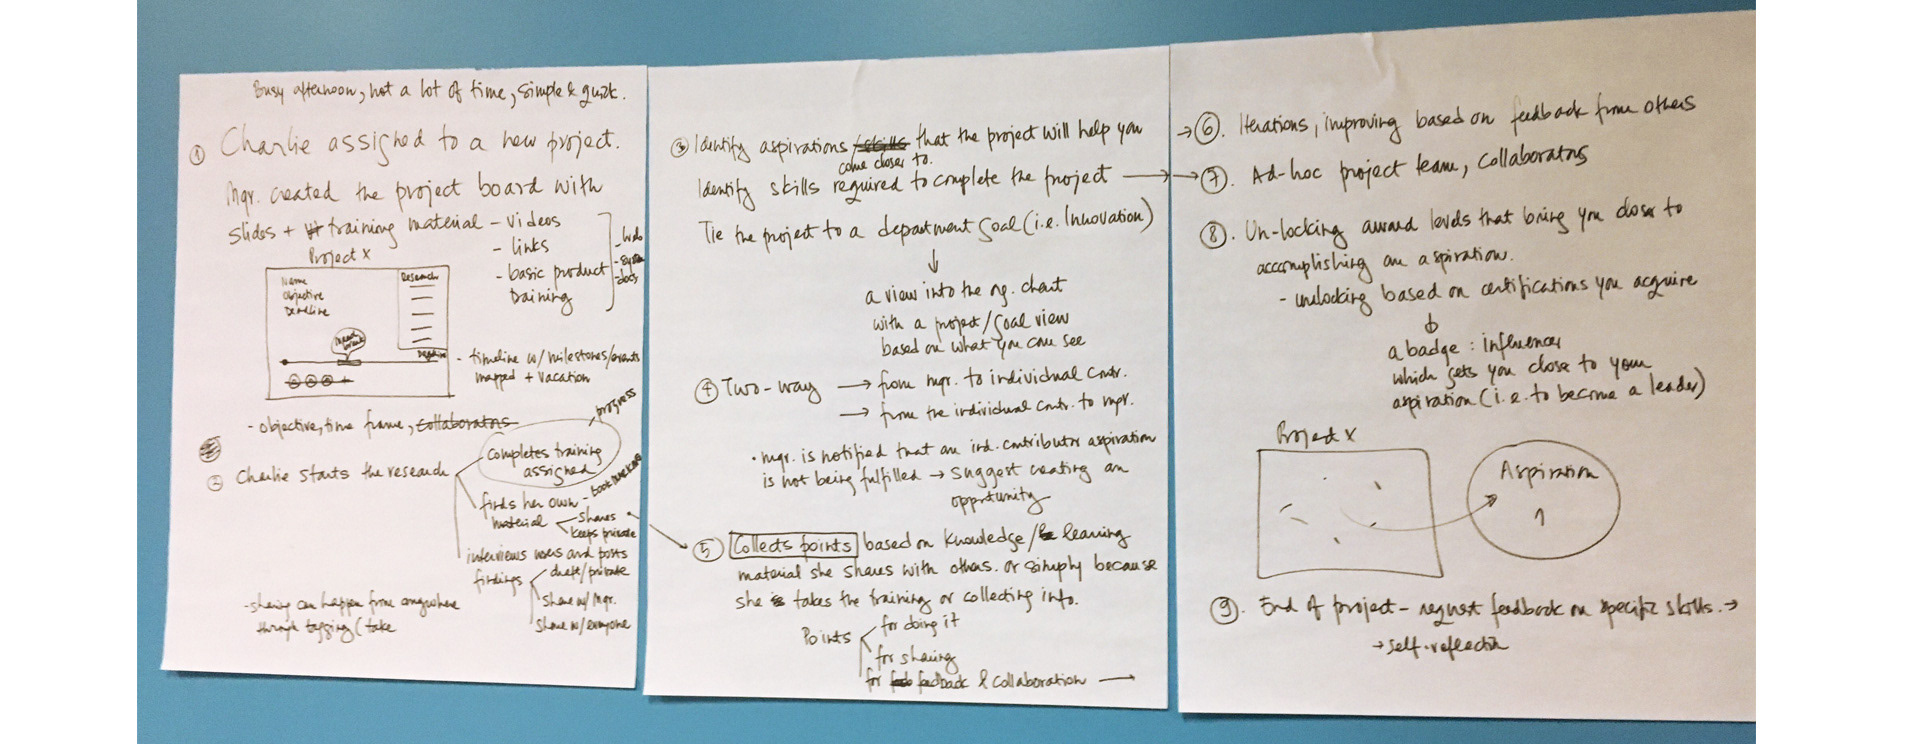 Busy afternoon, not a lot of time, simple & quick.
① Charlie assigned to a new project.
Mgr. created the project board with
slides + training material - videos
- links
- basic product
training
Project X
Name
Objective
Deadline
Research
Deadline
- timeline w/ milestones/events
mapped + vacation
- objective, time frame, collaborators
② Charlie starts the research
completes training
assigned
progress
finds her own
material
- bookmarking
shares
keeps private
interviews users and posts
findings
draft/private
share w/ mgr.
share w/ everyone
- sharing can happen from anywhere
through tagging (take
③ Identify aspirations /skills that the project will help you
come closer to.
Identify skills required to complete the project →
Tie the project to a department goal (i.e. Innovation)
↓
a view into the org. chart
with a project/goal view
based on what you can see
④ Two-way → from mgr. to individual contr.
→ from the individual contr. to mgr.
• mgr. is notified that an ind. contributor aspiration
is not being fulfilled → suggest creating an
opportunity
⑤ Collects points based on knowledge/ learning
material she shares with others. or simply because
she takes the training or collecting info.
Points
for doing it
for sharing
for feedback & collaboration →
→ ⑥. Iterations, improving based on feedback from others
→ ⑦. Ad-hoc project team, collaborators
⑧. Un-locking award levels that bring you closer to
accomplishing an aspiration.
- unlocking based on certifications you acquire
↓
a badge: influencer
which gets you close to your
aspiration (i.e. to become a leader)
Project X
Aspiration
⑨. End of project - request feedback on specific skills. →
→ self-reflection